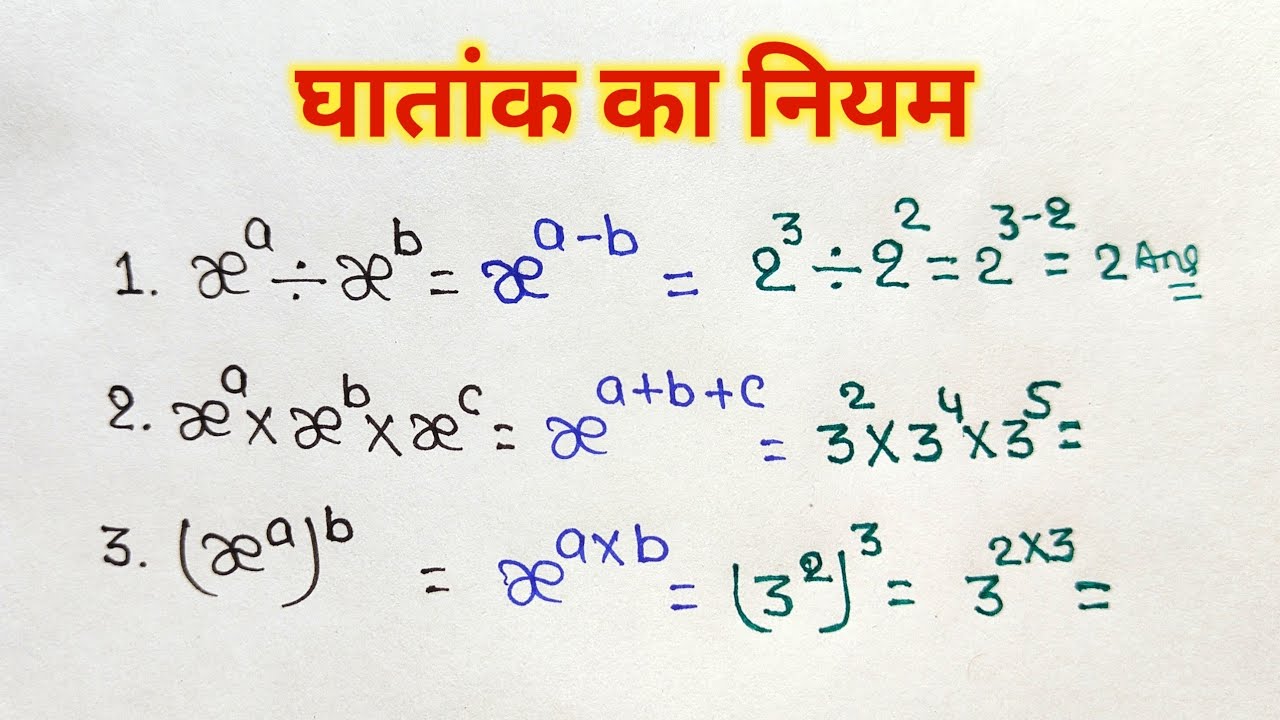 घातांक का नियम
1. x^a ÷ x^b = x^(a-b) = 2^3 ÷ 2^2 = 2^(3-2) = 2 Ans
2. x^a × x^b × x^c = x^(a+b+c) = 3^2 × 3^4 × 3^5 =
3. (x^a)^b = x^(a×b) = (3^2)^3 = 3^(2×3) =